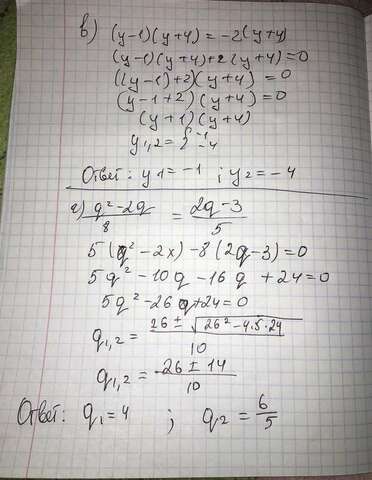 в) (y-1)(y+4) = -2(y+4)
(y-1)(y+4)+2(y+4)=0
((y-1)+2)(y+4) = 0
(y-1+2)(y+4)=0
(y+1)(y+4)
y1,2 = { -1 -4
Ответ: y1 = -1 ; y2 = -4
г) q²-2q/8 = 2q-3/5
5(q²-2x)-8(2q-3)=0
5q²-10q-16q+24=0
5q²-26q+24=0
q1,2 = 26±√26²-4·5·24/10
q1,2 = 26±14/10
Ответ: q1=4 ; q2 = 6/5